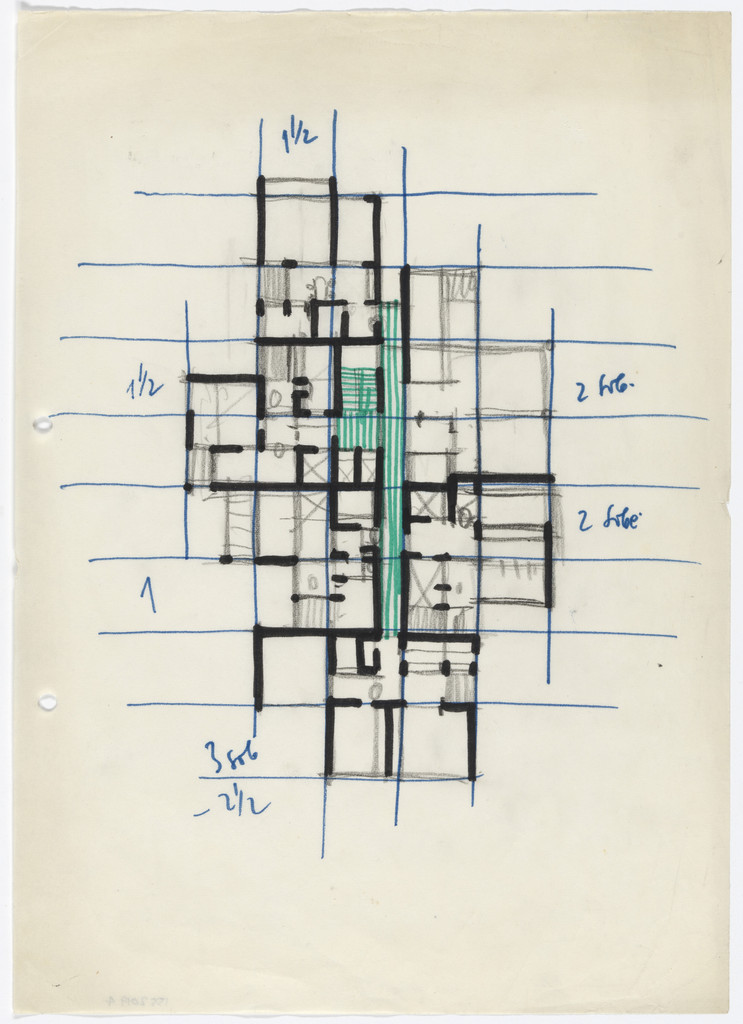 1 1/2
1 1/2
2 sob.
2 sobe
1
3 sob
- 2 1/2